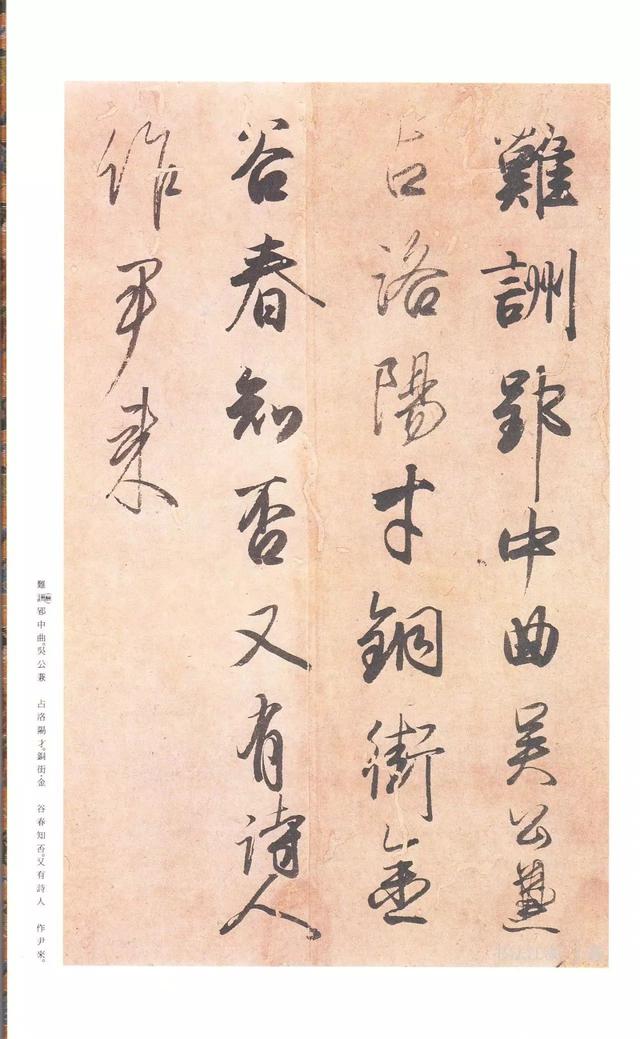 難詶郢中曲吴公蒹
占洛陽才銅街金
谷春知否又有诗人
作尹来
難詶(酬)郢中曲。吳公兼 占洛陽才。銅街金 谷春知否。又有詩人 作尹來。